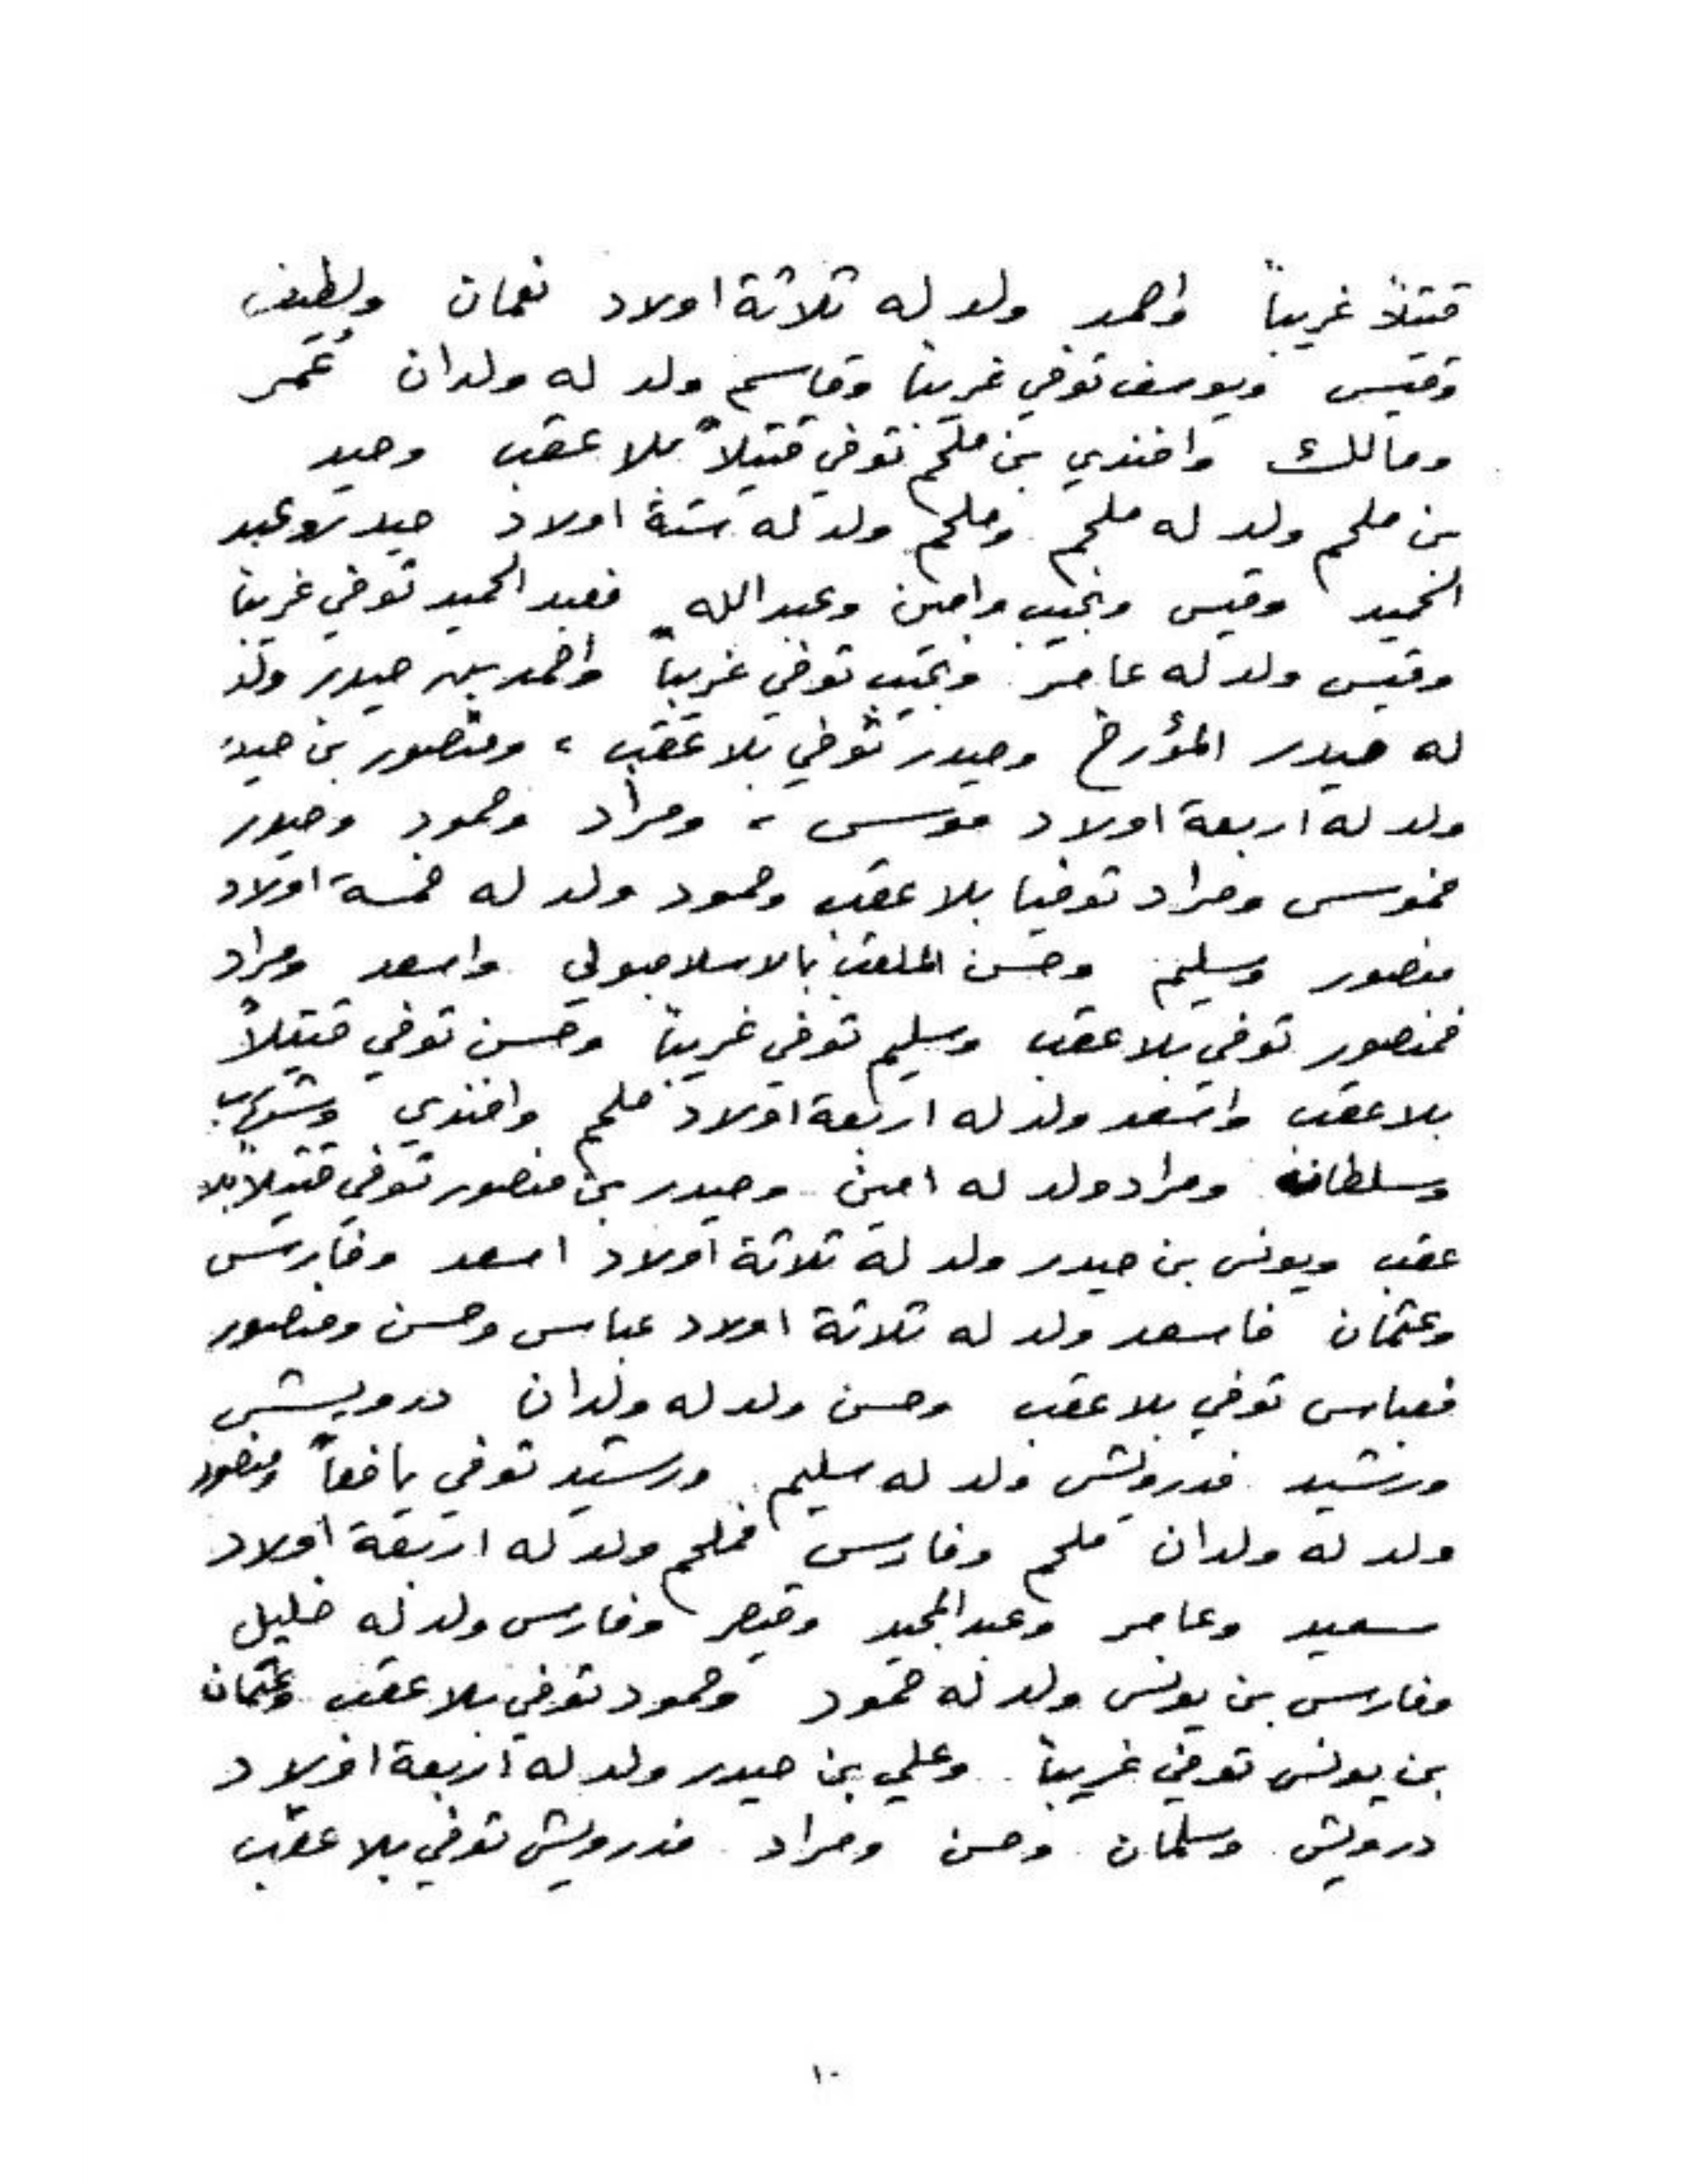 قتيلاً غريباً واحمد ولد له ثلاثة اولاد نعمان ولطيف
وقيس ويوسف توفي غريباً وقاسم ولد له ولدان عُمر
ومالك وافندي بن ملحم توفي قتيلاً بلا عقب وحيد
بن ملحم ولد له ملحم وملحم ولد له ستة اولاد حيدر وعبد
الحميد وقيس ونجيب وامين وعبد الله فعبد الحميد توفي غريباً
وقيس ولد له عامر ونجيب توفي غريباً واحمد بن حيدر ولد
له حيدر المؤرخ وحيدر توفي بلا عقب ، ومنصور بن حيدر
ولد له اربعة اولاد موسى ، ومراد وحمود وحيدر
فموسى ومراد توفيا بلا عقب وحمود ولد له خمسة اولاد
منصور وسليم وحسن الملقب بالاسلامبولي واسعد ومراد
فمنصور توفي بلا عقب وسليم توفي غريباً وحسن توفي قتيلاً
بلا عقب واسعد ولد له اربعة اولاد ملحم وافندي
وسلطان ومراد ولد له امين وحيدر بن منصور توفي قتيلاً بلا
عقب ويونس بن حيدر ولد له ثلاثة اولاد اسعد وفارس
وعثمان فاسعد ولد له ثلاثة اولاد عباس وحسن ومنصور
فعباس توفي بلا عقب وحسن ولد له ولدان درويش
ورشيد فدرويش ولد له سليم ورشيد توفي يافعاً ومنصور
ولد له ولدان ملحم وفارس فملحم ولد له اربعة اولاد
سعيد وعامر وعبد المجيد وقيصر وفارس ولد له خليل
وفارس بن يونس ولد له حمود وحمود توفي بلا عقب وعثمان
بن يونس توفي غريباً وعلي بن حيدر ولد له اربعة اولاد
درويش وسلمان وحسن ومراد فدرويش توفي بلا عقب
١٠